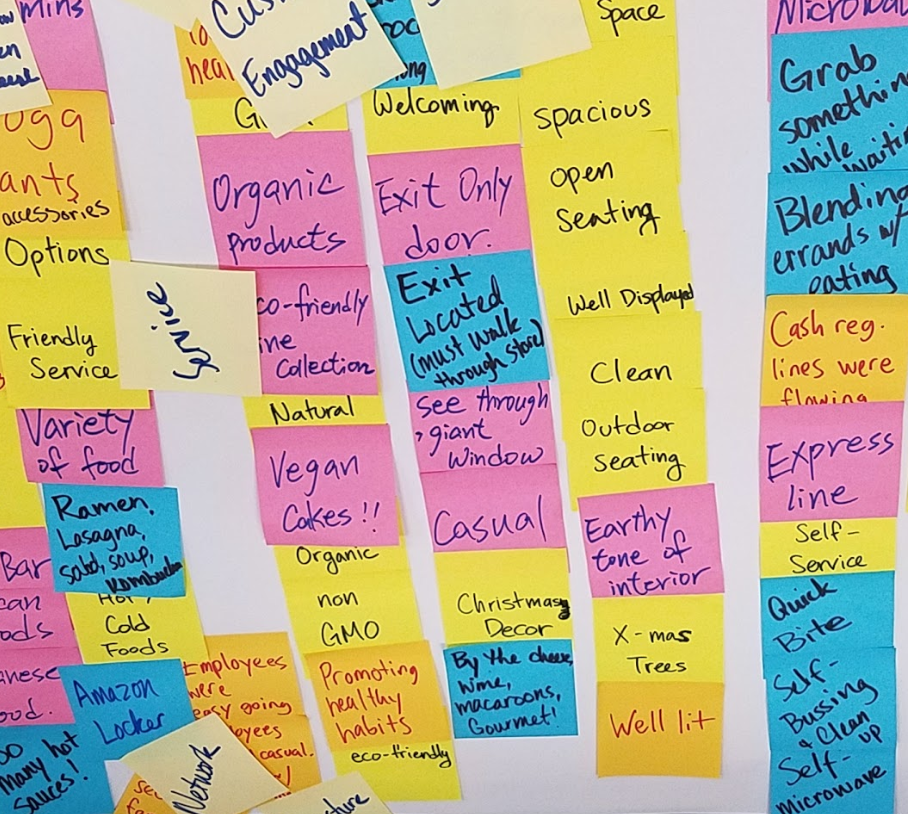 Mins
oga
ants
accessories
Options
Friendly
Service
Variety
of food
Ramen,
Lasagna,
salad, soup,
Kombucha
Bar
Cold
Foods
Amazon
Locker
many hot
sauces!
Service
Engagement
Organic
products
co-friendly
Collection
Natural
Vegan
Cakes!!
Organic
non
GMO
Promoting
healthy
habits
eco-friendly
Employees
were
easy going
casual.
Network
Welcoming
Exit Only
door.
Exit
Located
(must walk
through store)
see through
giant
window
Casual
Christmas
Decor
By the cheese,
wine,
macaroons,
Gourmet!
Space
Spacious
Open
Seating
Well Displayed
Clean
Outdoor
Seating
Earthy
tone of
interior
X-mas
Trees
Well lit
Grab
somethin
while waitin
Blending
errands w/
eating
Cash reg.
lines were
flowing
Express
line
Self-
Service
Quick
Bite
Self-
Bussing
& Clean
up
Self-
microwave